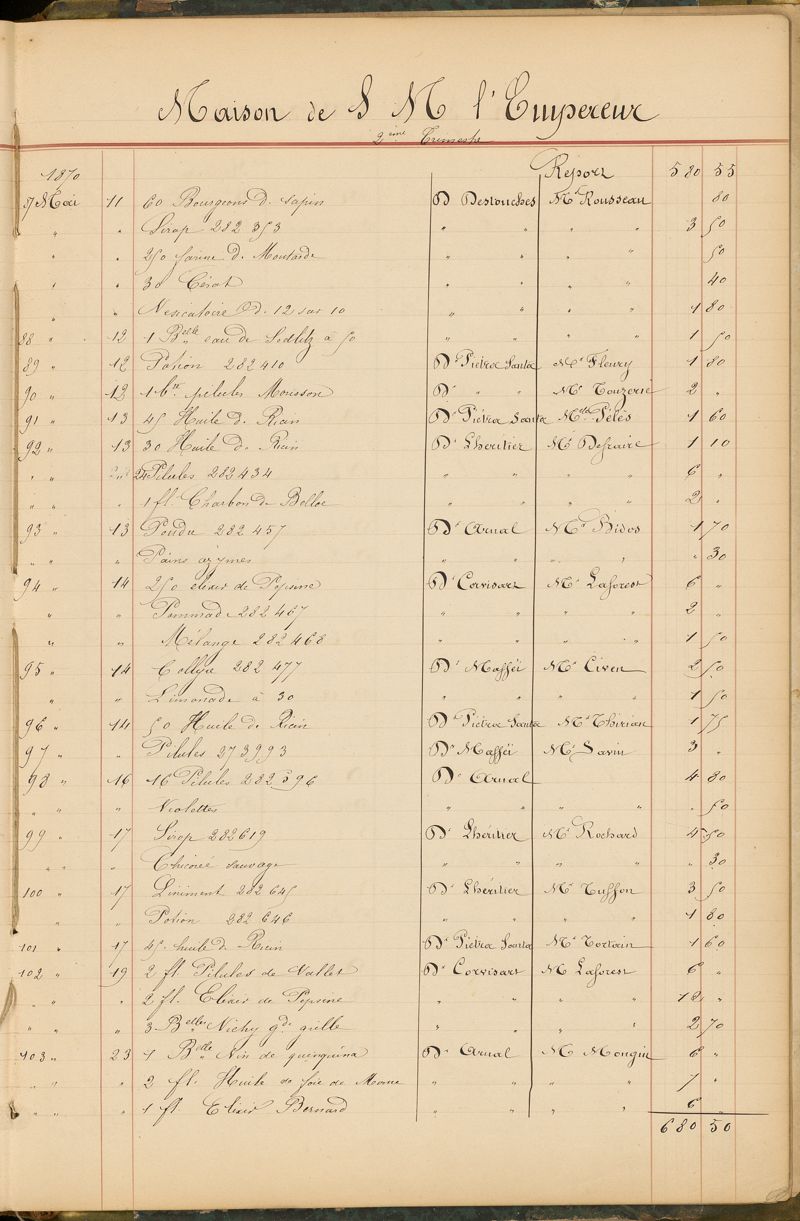 Maison de S M l'Empereur
2ème Trimestre
1870 Report 580 55
87 Mai 11 60 Bourgeons d. sapin Dr Destouches Mr Rousseau 80
" " Sirop 282 353 " " " " 3 50
" " 250 farine d. Moutarde " " " 50
" " 30 Cérat " " " " 40
" " Vesicatoire Od. 12 sur 10 " " " " 1 80
88 " 12 1 Belle eau de Sedlitz à 50 " " " " 1 50
89 " 12 Potion 282 410 Dr Pietra Santa Mr Fleury 1 80
90 " 12 1 bte pilules Mousson Dr " " Mr Touzerie 2 "
91 " 13 45 Huile d. Ricin Dr Piétra Santa Mr Pélés 1 60
92 " 13 30 Huile d. Ricin Dr Lheritier Mr Defraire 1 10
" " 24 Pilules 282 434 " " " " 6 "
" " 1 fl. Charbon de Belloc " " " " 2 "
93 " 13 Poudre 282 457 Dr Arnal Mr Bidos 1 70
" " " Pains azymes " " " " " 30
94 " 14 250 elixir de Pepsine Dr Corvisart Mr Laforest 6 "
" " Pommade 282 467 " " " " 2 "
" " Mélange 282 468 " " " " 1 50
95 " 14 Collyre 282 477 Dr Maffëi Mr Civen 2 50
" " Limonade à 30 " " " " 1 50
96 " 14 50 Huile de Ricin Dr Pietra Santa Mr Thirian 1 75
97 " " Pilules 273993 Dr Maffëi Mr Savin 3 "
98 " 16 16 Pilules 282 596 Dr Arnal 4 80
" " " Violettes " " " " " 50
99 " 17 Sirop 282619 Dr Lhéritier Mr Rochard 4 50
" " " Chicorée sauvage " " " " " 30
100 " 17 Liniment 282 645 Dr Lhéritier Mr Tuffon 3 50
" " Potion 282 646 " " " " 1 80
101 " 17 45 huile d. Ricin Dr Pietra Santa Mr Tortain 1 60
102 " 19 2 fl. Pilules de Vallet Dr Corvisart M Laforest 6 "
" " " 2 fl. Elixir de Pepsine " " " " 12 "
" " " 3 Belles Vichy gde grille " " " " 2 70
103 " 23 1 Belle Vin de quinquina Dr Arnal Mr Mongin 6 "
" " " 2 fl. Huile de foie de Morue " " " " 7 "
" " " 1 fl Elixir Bernard " " " " 6 "
680 50